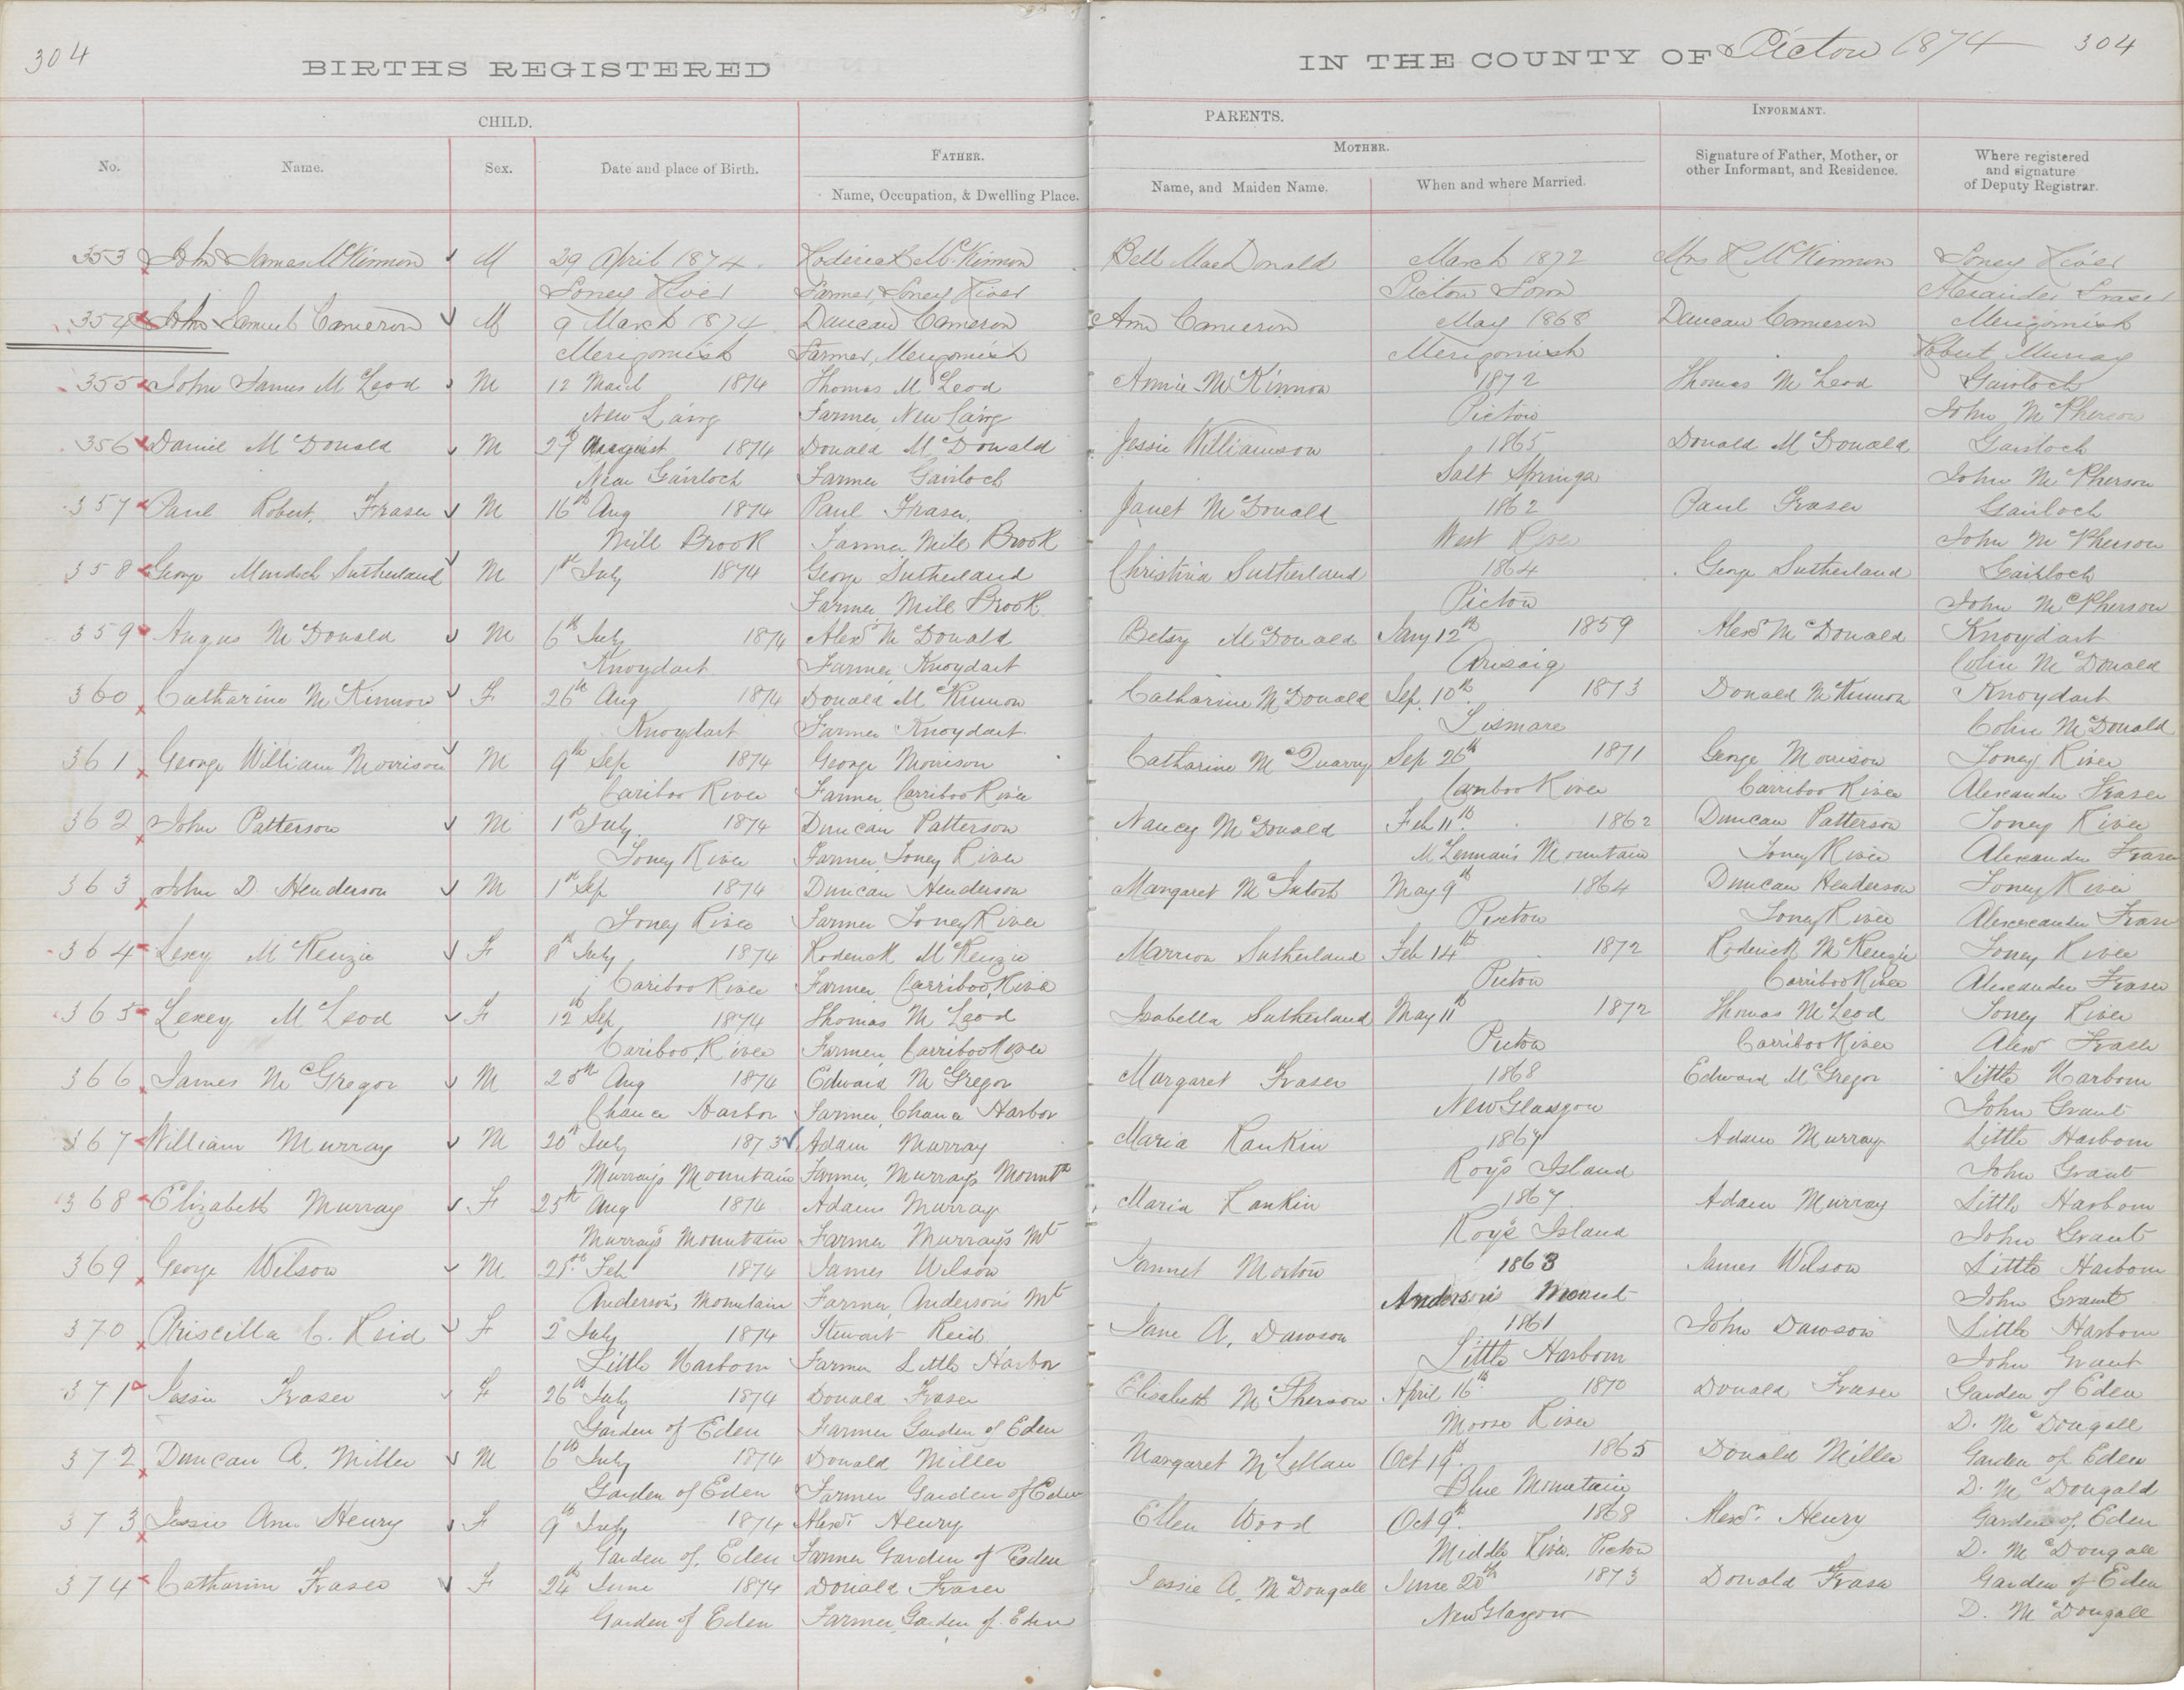 304
BIRTHS REGISTERED
IN THE COUNTY OF Pictou 1874 304
CHILD.
PARENTS.
INFORMANT.
No.
Name.
Sex.
Date and place of Birth.
FATHER.
Name, Occupation, & Dwelling Place.
MOTHER.
Name, and Maiden Name.
When and where Married.
Signature of Father, Mother, or
other Informant, and Residence.
Where registered
and signature
of Deputy Registrar.
353 John James McKinnon M 29 April 1874 Roderick McKinnon Bell MacDonald March 1872 Mrs R McKinnon Toney River
Toney River Farmer, Toney River Pictou Town Alexander Fraser
354 John Samuel Cameron M 9 March 1874 Duncan Cameron Ann Cameron May 1868 Duncan Cameron Merigomish
Merigomish Farmer, Merigomish Merigomish Robert Murray
355 John James McLeod M 12 March 1874 Thomas McLeod Annie McKinnon 1872 Thomas McLeod Gairloch
New Lairg Farmer, New Lairg Pictou John McPherson
356 Daniel McDonald M 27 August 1874 Donald McDonald Jessie Williamson 1865 Donald McDonald Gairloch
New Gairloch Farmer Gairloch Salt Springs John McPherson
357 Paul Robert Fraser M 16th Aug 1874 Paul Fraser, Janet McDonald 1862 Paul Fraser Gairloch
Mill Brook Farmer Mill Brook West River John McPherson
358 George Murdoch Sutherland M 1st July 1874 George Sutherland Christina Sutherland 1864 George Sutherland Gairloch
Farmer, Mill Brook Pictou John McPherson
359 Angus McDonald M 6th July 1874 Alexr McDonald Betsy McDonald Jany 12th 1859 Alexr McDonald Knoydart
Knoydart Farmer, Knoydart Arisaig Colin McDonald
360 Catharine McKinnon F 26th Aug 1874 Donald McKinnon Catharine McDonald Sep. 10th 1873 Donald McKinnon Knoydart
Knoydart Farmer Knoydart Lismare Colin McDonald
361 George William Morrison M 9th Sep 1874 George Morrison Catharine McQuarry Sep 26th 1871 George Morrison Toney River
Cariboo River Farmer, Carriboo River Cariboo River Carriboo River Alexander Fraser
362 John Patterson M 1st July 1874 Duncan Patterson Nancy McDonald Feb 11th 1862 Duncan Patterson Toney River
Toney River Farmer, Toney River McLennan's Mountain Toney River Alexander Fraser
363 John D. Henderson M 1st Sep 1874 Duncan Henderson Margaret McIntosh May 9th 1864 Duncan Henderson Toney River
Toney River Farmer Toney River Pictou Toney River Alexander Fraser
364 Lexy McKenzie F 8th July 1874 Roderick McKenzie Marrion Sutherland Feb 14th 1872 Roderick McKenzie Toney River
Cariboo River Farmer, Carriboo River Pictou Carriboo River Alexander Fraser
365 Lexey McLeod F 12th Sep 1874 Thomas McLeod Isabella Sutherland May 11th 1872 Thomas McLeod Toney River
Cariboo River Farmer, Carriboo River Pictou Carriboo River Alexr Fraser
366 James McGregor M 25th Aug 1874 Edward McGregor Margaret Fraser 1868 Edward McGregor Little Harbour
Chance Harbor Farmer, Chance Harbor New Glasgow John Grant
367 William Murray M 20th July 1873 Adam Murray Maria Rankin 1867 Adam Murray Little Harbour
Murray's Mountain Farmer, Murrays Mountn Roy's Island John Grant
368 Elizabeth Murray F 25th Aug 1874 Adam Murray Maria Rankin 1867 Adam Murray Little Harbour
Murray's Mountain Farmer Murray's Mt Roy's Island John Grant
369 George Wilson M 21st Feb 1874 James Wilson Jannet Morton 1863 James Wilson Little Harbour
Anderson's Mountain Farmer, Anderson's Mt Anderson's Mount John Grant
370 Priscilla C. Reid F 2d July 1874 Stewart Reid Jane A. Dawson 1861 John Dawson Little Harbour
Little Harbour Farmer Little Harbor Little Harbour John Grant
371 Jessie Fraser F 26th July 1874 Donald Fraser Elisabeth McPherson April 16th 1870 Donald Fraser Garden of Eden
Garden of Eden Farmer Garden of Eden Moose River D. McDougall
372 Duncan A. Miller M 6th July 1874 Donald Miller Margaret McLellan Oct 19th 1865 Donald Miller Garden of Eden
Garden of Eden Farmer Garden of Eden Blue Mountain D. McDougald
373 Jessie Ann Henry F 9th July 1874 Alexr. Henry Ellen Wood Oct 9th 1868 Alexr. Henry Garden of Eden
Garden of Eden Farmer Garden of Eden Middle River Pictou D. McDougall
374 Catharine Fraser F 24th June 1874 Donald Fraser Jessie A. McDougall June 20th 1873 Donald Fraser Garden of Eden
Garden of Eden Farmer, Garden of Eden New Glasgow D. McDougall